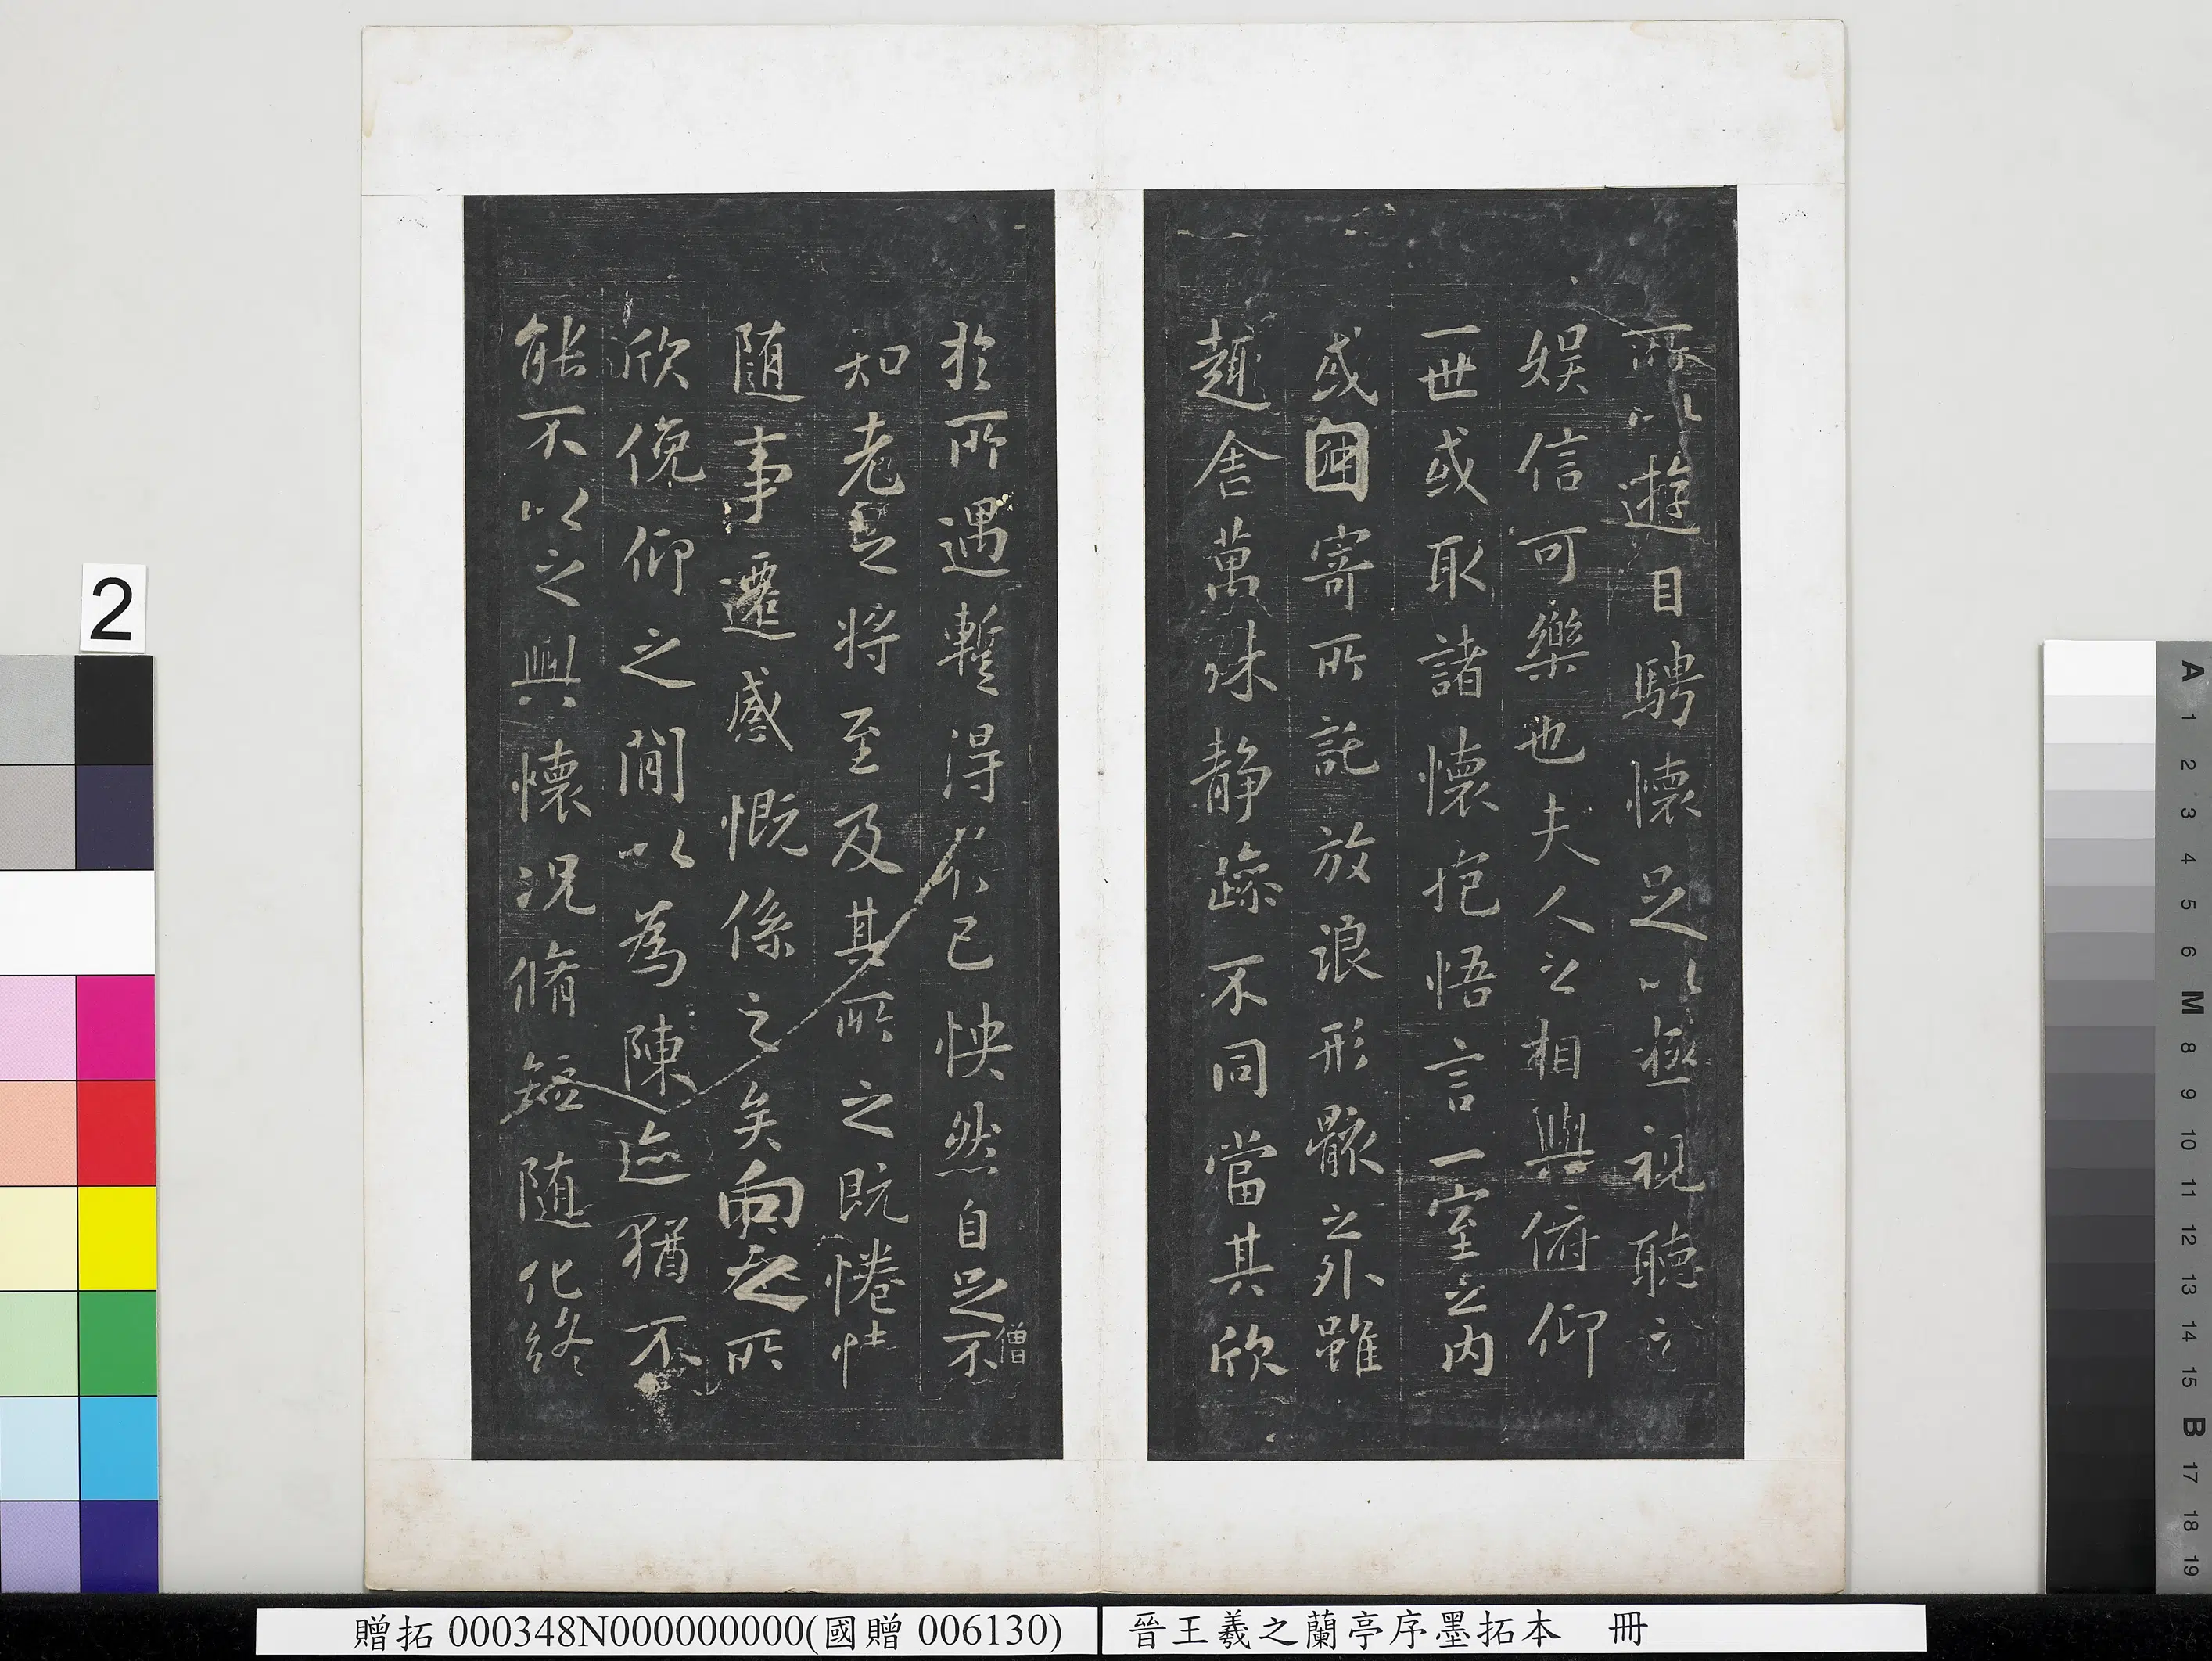 所以遊目騁懷足以極視聽之
娛信可樂也夫人之相與俯仰
一世或取諸懷抱悟言一室之內
或因寄所託放浪形骸之外雖
趣舍萬殊静躁不同當其欣
於所遇暫得於己怏然自足不
僧
知老之將至及其所之既惓情
随事遷感慨係之矣向之所
欣俛仰之閒以為陳迹猶不
能不以之興懷況脩短随化終
2
A 1 2 3 4 5 6 M 8 9 10 11 12 13 14 15 B 17 18 19
贈拓 000348N000000000(國贈 006130)
晉王羲之蘭亭序墨拓本 冊